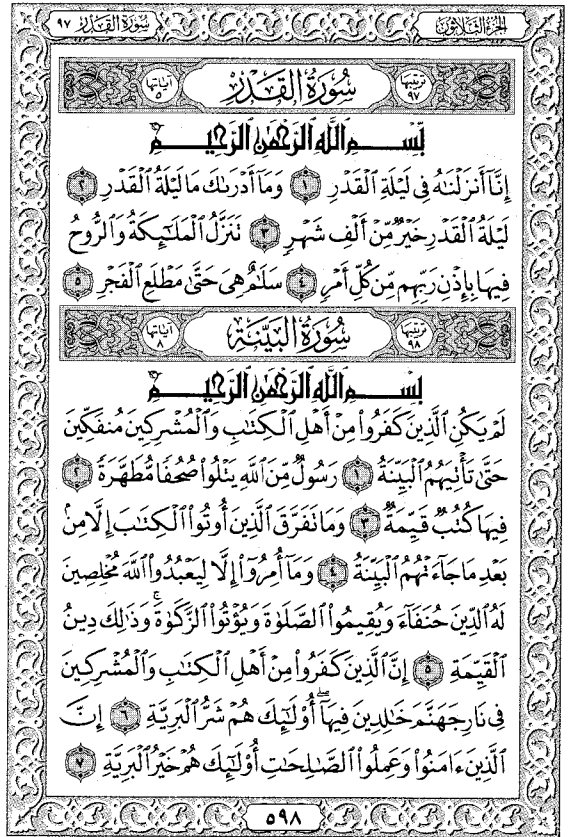 سُورَةُ القَدْرِ ٩٧ الجُزْءُ الثَّلَاثُونَ
تَرْتِيبُهَا ٩٧ سُورَةُ القَدْرِ آيَاتُهَا ٥
بِّسۡمِ ٱللَّهِ ٱلرَّحۡمَٰنِ ٱلرَّحِيمِ
إِنَّآ أَنزَلۡنَٰهُ فِي لَيۡلَةِ ٱلۡقَدۡرِ ١ وَمَآ أَدۡرَىٰكَ مَا لَيۡلَةُ ٱلۡقَدۡرِ ٢
لَيۡلَةُ ٱلۡقَدۡرِ خَيۡرٞ مِّنۡ أَلۡفِ شَهۡرٖ ٣ تَنَزَّلُ ٱلۡمَلَٰٓئِكَةُ وَٱلرُّوحُ
فِيهَا بِإِذۡنِ رَبِّهِم مِّن كُلِّ أَمۡرٖ ٤ سَلَٰمٌ هِيَ حَتَّىٰ مَطۡلَعِ ٱلۡفَجۡرِ ٥
تَرْتِيبُهَا ٩٨ سُورَةُ البَيِّنَةِ آيَاتُهَا ٨
بِسۡمِ ٱللَّهِ ٱلرَّحۡمَٰنِ ٱلرَّحِيمِ
لَمۡ يَكُنِ ٱلَّذِينَ كَفَرُواْ مِنۡ أَهۡلِ ٱلۡكِتَٰبِ وَٱلۡمُشۡرِكِينَ مُنفَكِّينَ
حَتَّىٰ تَأۡتِيَهُمُ ٱلۡبَيِّنَةُ ١ رَسُولٞ مِّنَ ٱللَّهِ يَتۡلُواْ صُحُفٗا مُّطَهَّرَةٗ ٢
فِيهَا كُتُبٞ قَيِّمَةٞ ٣ وَمَا تَفَرَّقَ ٱلَّذِينَ أُوتُواْ ٱلۡكِتَٰبَ إِلَّا مِنۢ
بَعۡدِ مَا جَآءَتۡهُمُ ٱلۡبَيِّنَةُ ٤ وَمَآ أُمِرُوٓاْ إِلَّا لِيَعۡبُدُواْ ٱللَّهَ مُخۡلِصِينَ
لَهُ ٱلدِّينَ حُنَفَآءَ وَيُقِيمُواْ ٱلصَّلَوٰةَ وَيُؤۡتُواْ ٱلزَّكَوٰةَۚ وَذَٰلِكَ دِينُ
ٱلۡقَيِّمَةِ ٥ إِنَّ ٱلَّذِينَ كَفَرُواْ مِنۡ أَهۡلِ ٱلۡكِتَٰبِ وَٱلۡمُشۡرِكِينَ
فِي نَارِ جَهَنَّمَ خَٰلِدِينَ فِيهَآۚ أُوْلَٰٓئِكَ هُمۡ شَرُّ ٱلۡبَرِيَّةِ ٦ إِنَّ
ٱلَّذِينَ ءَامَنُواْ وَعَمِلُواْ ٱلصَّٰلِحَٰتِ أُوْلَٰٓئِكَ هُمۡ خَيۡرُ ٱلۡبَرِيَّةِ ٧
٥٩٨